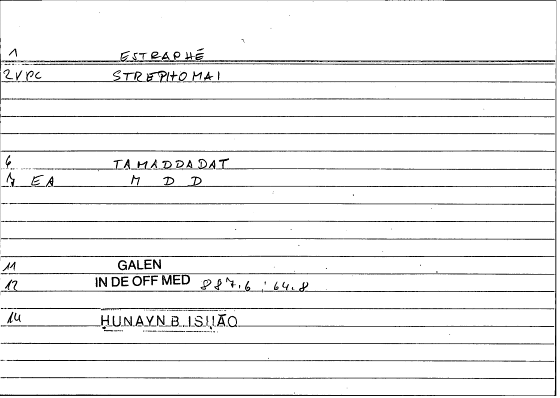 1 ESTRAPHĒ
2 VPC STREPHOMAI
6 TAMADDADAT
7 EA M D D
11 GALEN
12 IN DE OFF MED 887.6 ; 64.8
14 ḤUNAYN B. ISḤĀQ